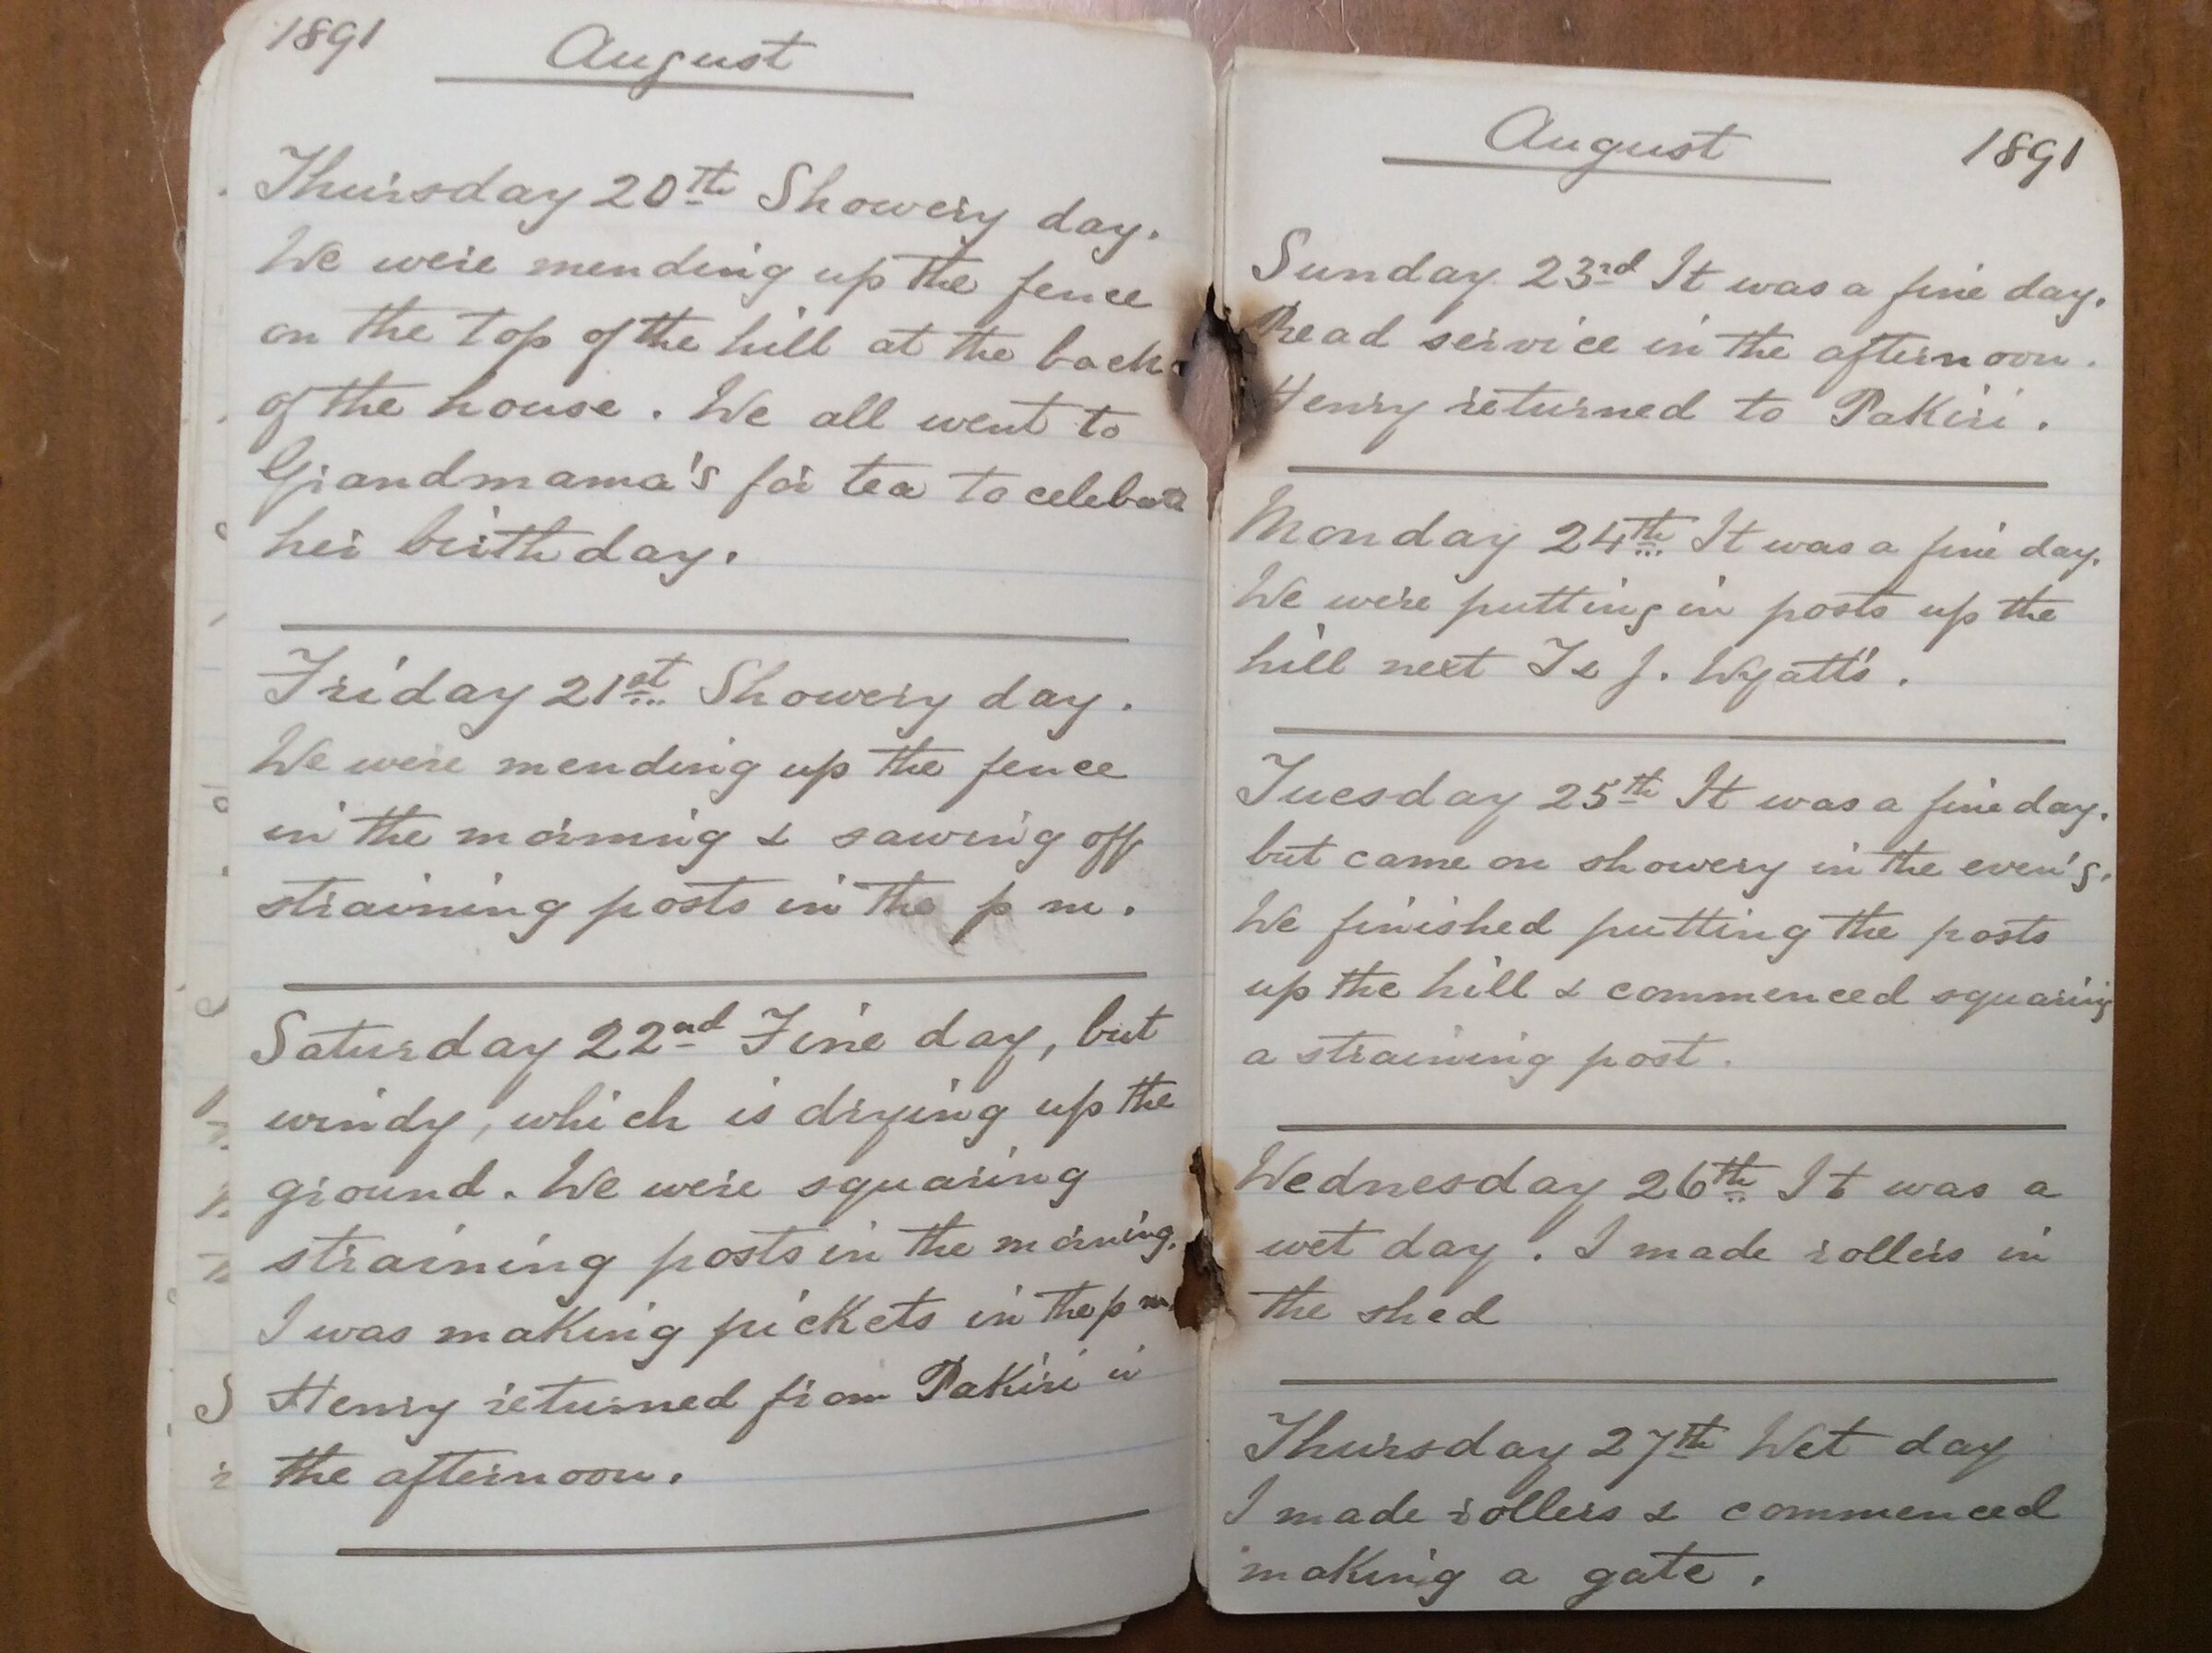 1891
August
Thursday 20th Showery day.
We were mending up the fence
on the top of the hill at the back
of the house. We all went to
Grandmama's for tea to celebrate
her birthday.
Friday 21st Showery day.
We were mending up the fence
in the morning & sawing off
straining posts in the p m.
Saturday 22nd Fine day, but
windy, which is drying up the
ground. We were squaring
straining posts in the morning.
I was making pickets in the p m.
Henry returned from Pakiri in
the afternoon.
August
1891
Sunday 23rd It was a fine day.
Read service in the afternoon.
Henry returned to Pakiri.
Monday 24th It was a fine day.
We were putting in posts up the
hill next J. Wyatt's.
Tuesday 25th It was a fine day.
but came on showery in the even'g.
We finished putting the posts
up the hill & commenced squaring
a straining post.
Wednesday 26th It was a
wet day. I made rollers in
the shed
Thursday 27th Wet day
I made rollers & commenced
making a gate.